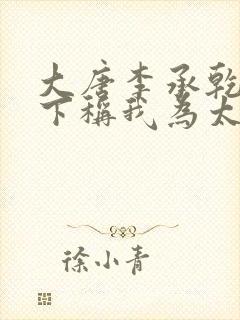 大唐李承乾
下稱我為太
徐小青